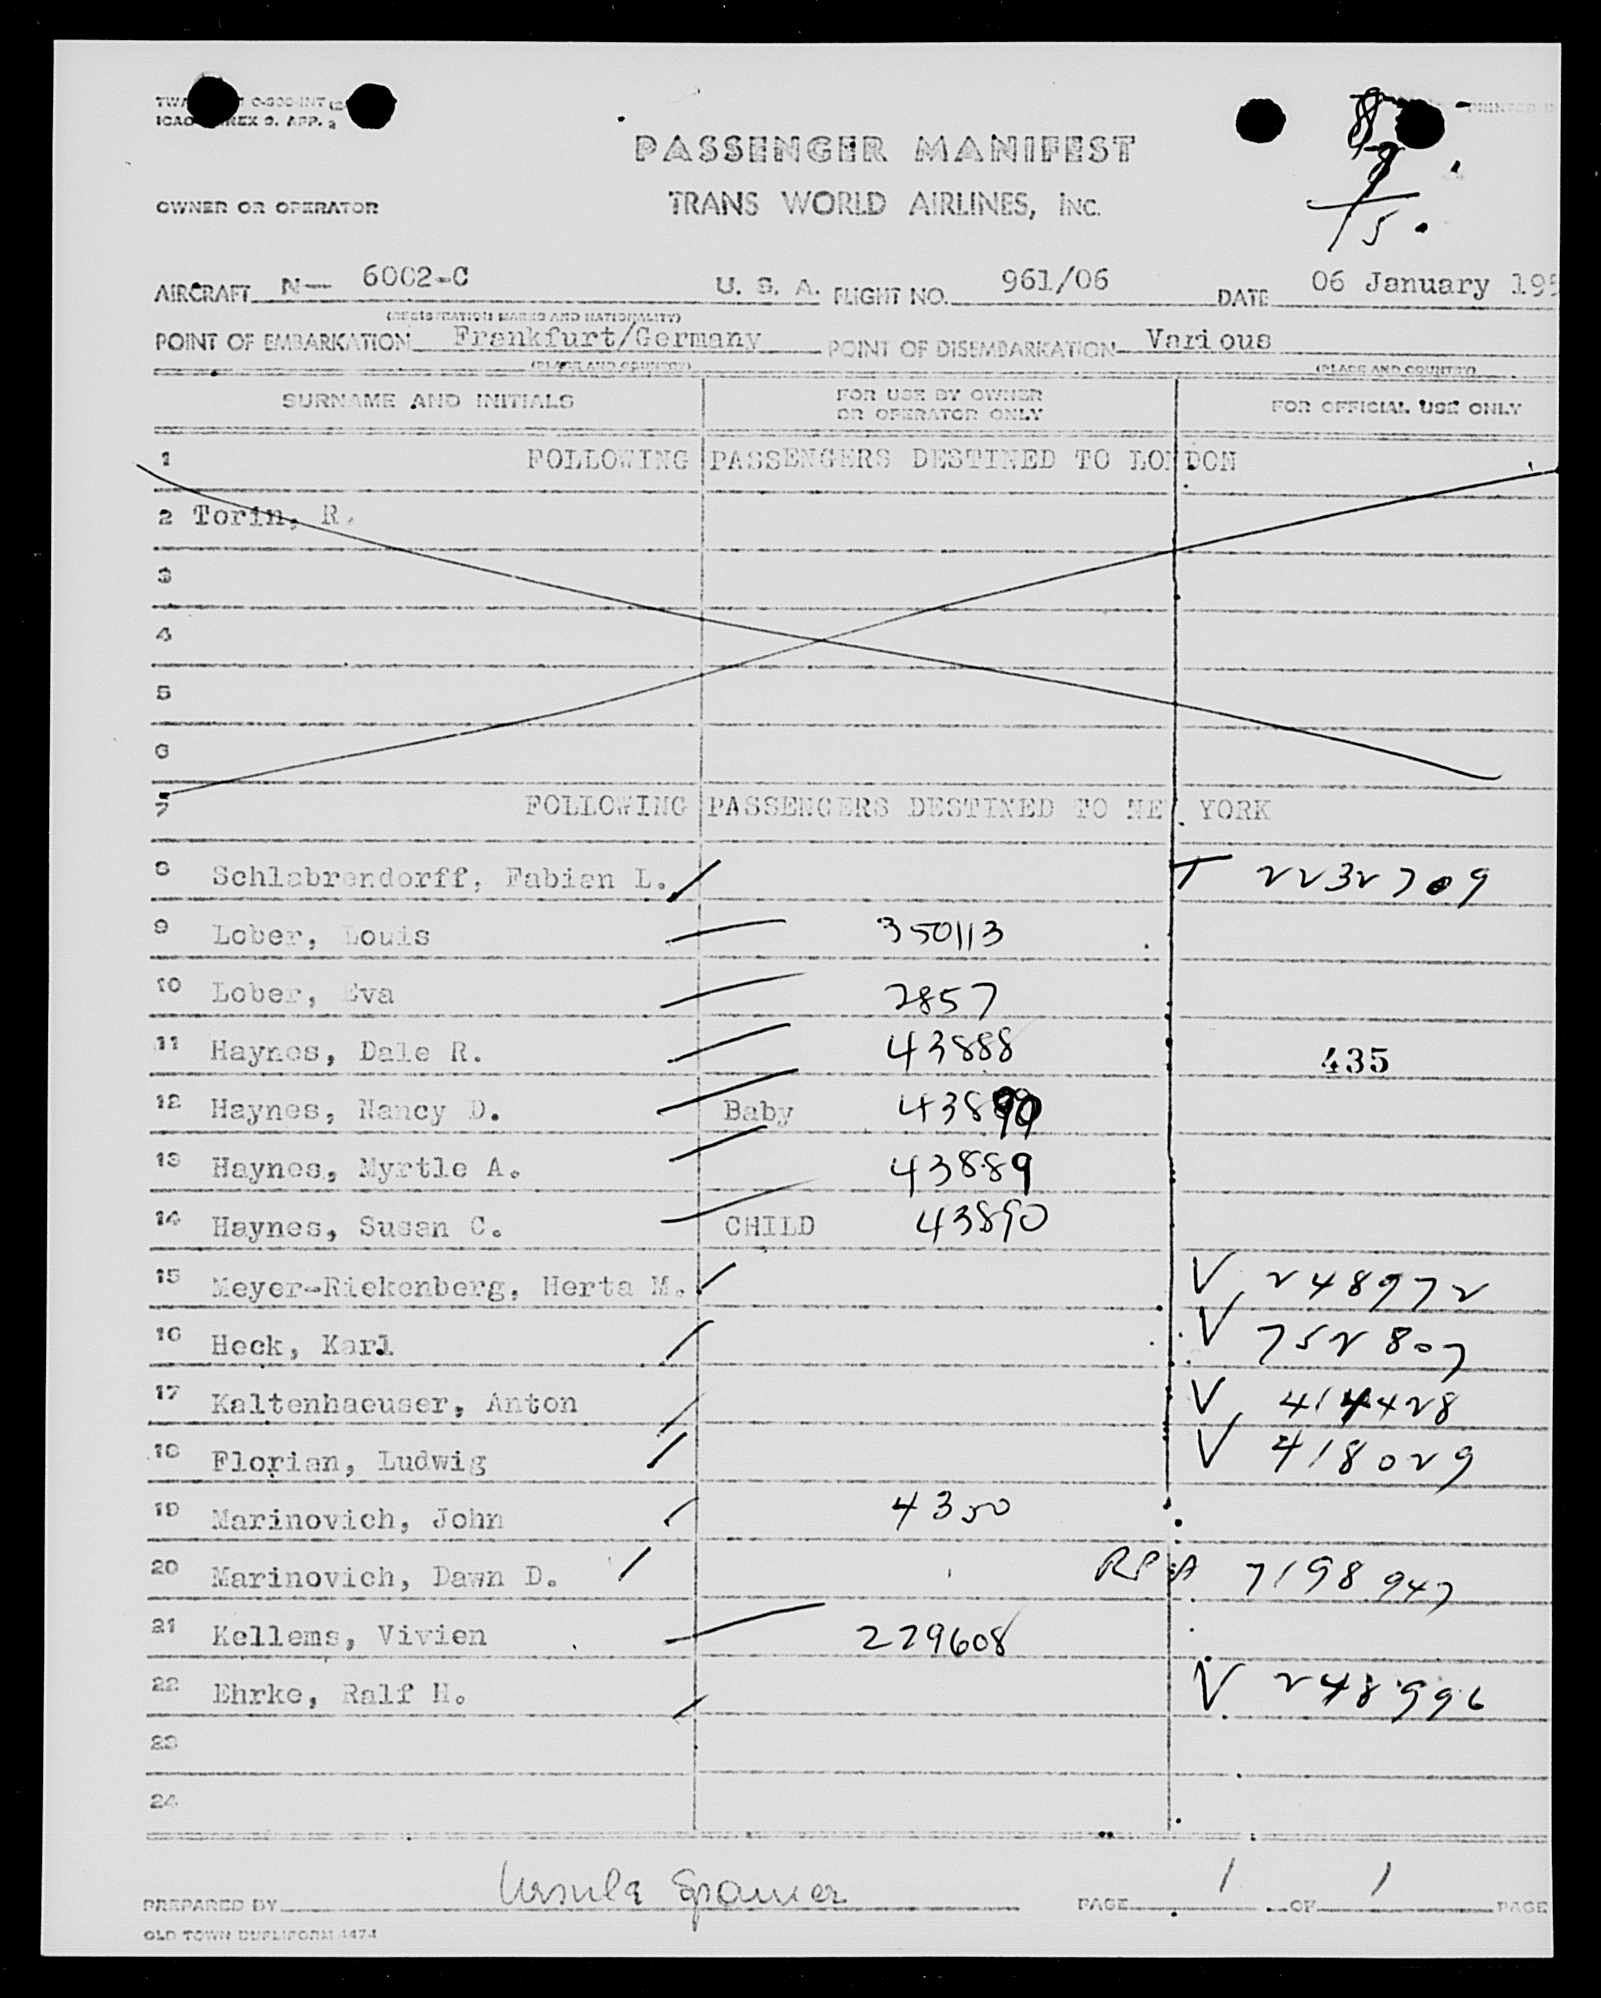 ICAO ANNEX 9. APP. 2
PASSENGER MANIFEST
OWNER OR OPERATOR
TRANS WORLD AIRLINES, Inc.
8
9
15.
AIRCRAFT N— 6002-C U. S. A. FLIGHT NO. 961/06 DATE 06 January 195
(REGISTRATION MARKS AND NATIONALITY)
POINT OF EMBARKATION Frankfurt/Germany POINT OF DISEMBARKATION Various
(PLACE AND COUNTRY) (PLACE AND COUNTRY)
SURNAME AND INITIALS FOR USE BY OWNER OR OPERATOR ONLY FOR OFFICIAL USE ONLY
1 FOLLOWING PASSENGERS DESTINED TO LONDON
2 Torin, R.
3
4
5
6
7 FOLLOWING PASSENGERS DESTINED TO NEW YORK
8 Schlabrendorff, Fabian L. T 2232709
9 Lober, Louis 350113
10 Lober, Eva 2857
11 Haynes, Dale R. 43888 435
12 Haynes, Nancy D. Baby 43890
13 Haynes, Myrtle A. 43889
14 Haynes, Susan C. CHILD 43890
15 Meyer-Riekenberg, Herta M. V 248972
16 Heck, Karl V 752807
17 Kaltenhaeuser, Anton V 414428
18 Florian, Ludwig V 418029
19 Marinovich, John 4350
20 Marinovich, Dawn D. RPA 7198947
21 Kellems, Vivien 229608
22 Ehrke, Ralf H. V 248996
23
24
PREPARED BY Ursula Spamer PAGE 1 OF 1 PAGE
OLD TOWN DUPLIFORM 1474